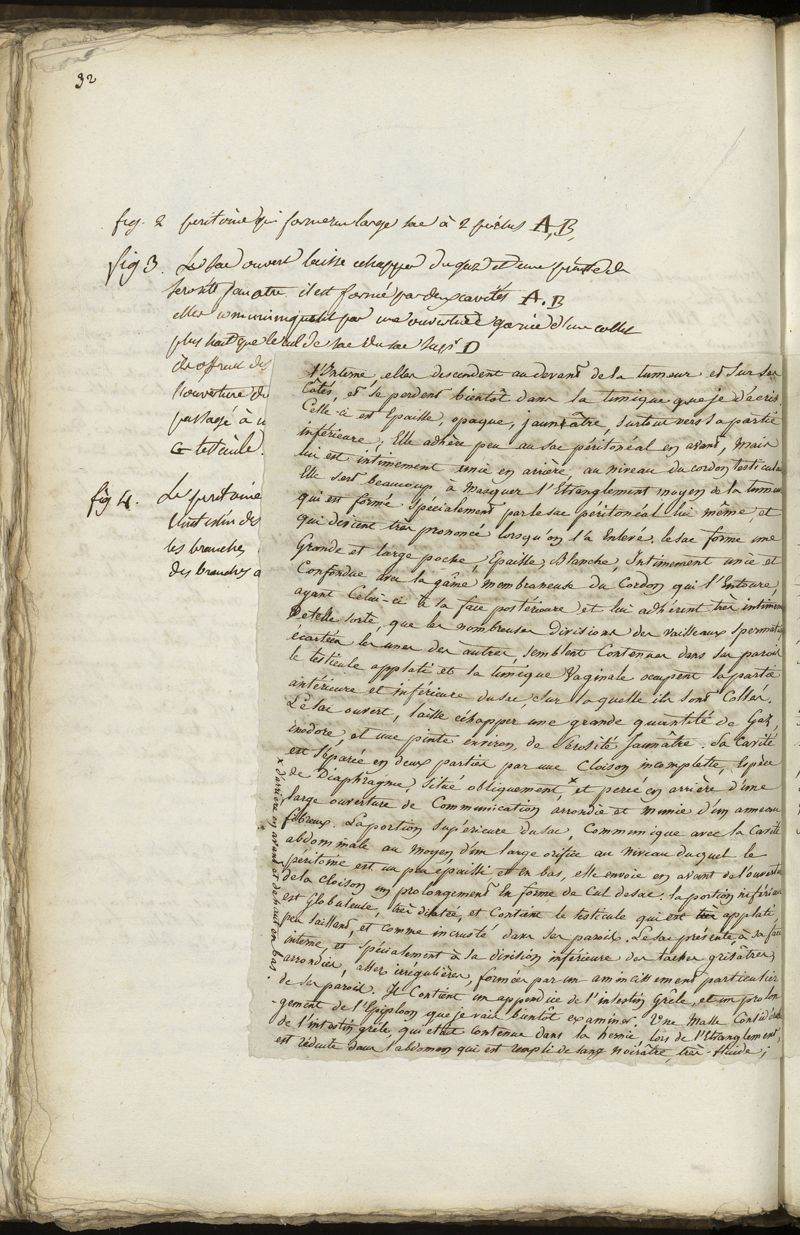 32
fig. 2 peritoine qui forme un large sac à 2 A, B,
fig 3. Le sac ouvert laisse echapper du gaz et une pinte de
serosité jaunatre. il est formé par deux cavités A. B
elles communiquent par une ouverture garnie d'un collet
plus haut que le cul de sac du sac supr D
ils offrent des
l'ouverture de
passage à u
C testicule.
fig 4. Le peritoine
l'intestin des
les branches
des branches a
l'Interne, elles descendent au devant de la tumeur et sur ses
Côtés, et se perdent bientôt dans la tunique que je décris.
Celle-ci est Epaisse, opaque, jaunâtre, surtout vers la partie
inférieure; Elle adhère peu au sac péritonéal en avant, Mais
lui est intimement unie en arrière, au niveau du cordon testicula
Elle sert beaucoup à Masquer l'Etranglement moyen de la tumeur
qui est formé Spécialement par le sac peritonéal lui même, et
qui devient très prononcé lorsqu'on l'a Enlevé. le sac forme une
Grande et large poche, Epaisse, Blanche, Intimement unie et
Confondue avec la gâine Membraneuse du Cordon qui l'Entoure,
ayant Celui-ci à sa face postérieure et lui adhérent très intimem
De telle sorte, que les nombreuses divisions des vaisseaux spermati
écartées les unes des autres, semblent Contenues dans ses parois
le testicule applati et la tunique Vaginale occupent la partie
antérieure et inférieure du sac, sur laquelle ils sont Collés.
Le sac ouvert, laisse échapper une grande quantité de Gaz,
inodore, et une pinte environ de Serosité Jaunâtre. Sa Cavité
est séparée en deux parties par une Cloison incomplette, Espèce
de Diaphragme, Situé obliquement, x et percé en arrière d'une
large ouverture de Communication arrondie et munie d'un anneau
fibreux. La portion supérieure du sac, Communique avec la Cavité
abdominale au moyen d'un large orifice au niveau duquel le
péritoine est un peu épaissi et en bas, elle envoie en avant de l'ouvertu
de la Cloison un prolongement En forme de Cul de sac. la portion inférieure
est Globuleuse, très dilatée, et Contient le testicule qui est très applati
peu saillant, et comme incrusté dans ses parois. Le sac présente, à sa face
interne, et spécialement à la division inférieure des taches grisâtres,
arrondies, assez irrégulières, formées par un amincissement particulier
de ses parois. Il Contient un appendice de l'intestin Grêle, et un prolon
-gement de l'Epiploon que je vais bientôt examiner. Une Masse Considérab
de l'intestin grêle, qui etait contenue dans la hernie lors de l'Etranglement,
est réduite dans l'abdomen qui est rempli de sang noirâtre, très-fluide;
x d'arrière en avant et de haut en bas.